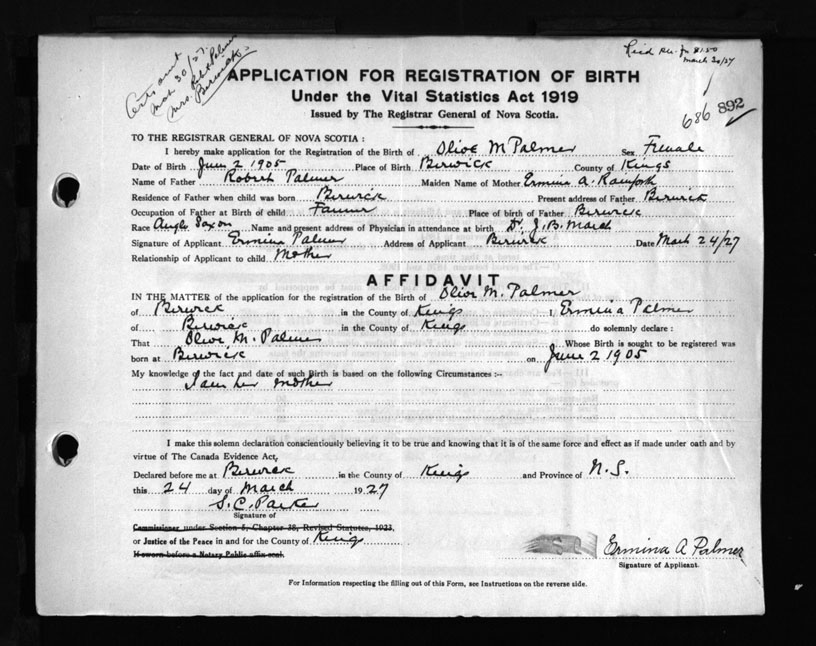 Certs sent
Mar. 30/27.
Mrs. Robt Palmer
Berwick
Rec'd
March 30/27
686 892
APPLICATION FOR REGISTRATION OF BIRTH
Under the Vital Statistics Act 1919
Issued by The Registrar General of Nova Scotia.
TO THE REGISTRAR GENERAL OF NOVA SCOTIA :
I hereby make application for the Registration of the Birth of Olive M Palmer Sex Female
Date of Birth June 2 1905 Place of Birth Berwick County of Kings
Name of Father Robert Palmer Maiden Name of Mother Ermina A. Rainforth
Residence of Father when child was born Berwick Present address of Father Berwick
Occupation of Father at Birth of child Farmer Place of birth of Father Berwick
Race Anglo Saxon Name and present address of Physician in attendance at birth Dr. J. B. March
Signature of Applicant Ermina Palmer Address of Applicant Berwick Date March 24/27
Relationship of Applicant to child Mother
AFFIDAVIT
IN THE MATTER of the application for the registration of the Birth of Olive M. Palmer
of Berwick in the County of Kings I, Ermina Palmer
of Berwick in the County of Kings do solemnly declare :
That Olive M. Palmer Whose Birth is sought to be registered was
born at Berwick on June 2 1905
My knowledge of the fact and date of such Birth is based on the following Circumstances :—
I am her mother
I make this solemn declaration conscientiously believing it to be true and knowing that it is of the same force and effect as if made under oath and by
virtue of The Canada Evidence Act,
Declared before me at Berwick in the County of Kings and Province of N.S.
this 24 day of March 1927
S. C. Parker
Signature of
Commissioner under Section 5, Chapter 38, Revised Statutes, 1923,
or Justice of the Peace in and for the County of Kings
If sworn before a Notary Public affix seal.
Ermina A Palmer
Signature of Applicant.
For Information respecting the filling out of this Form, see Instructions on the reverse side.